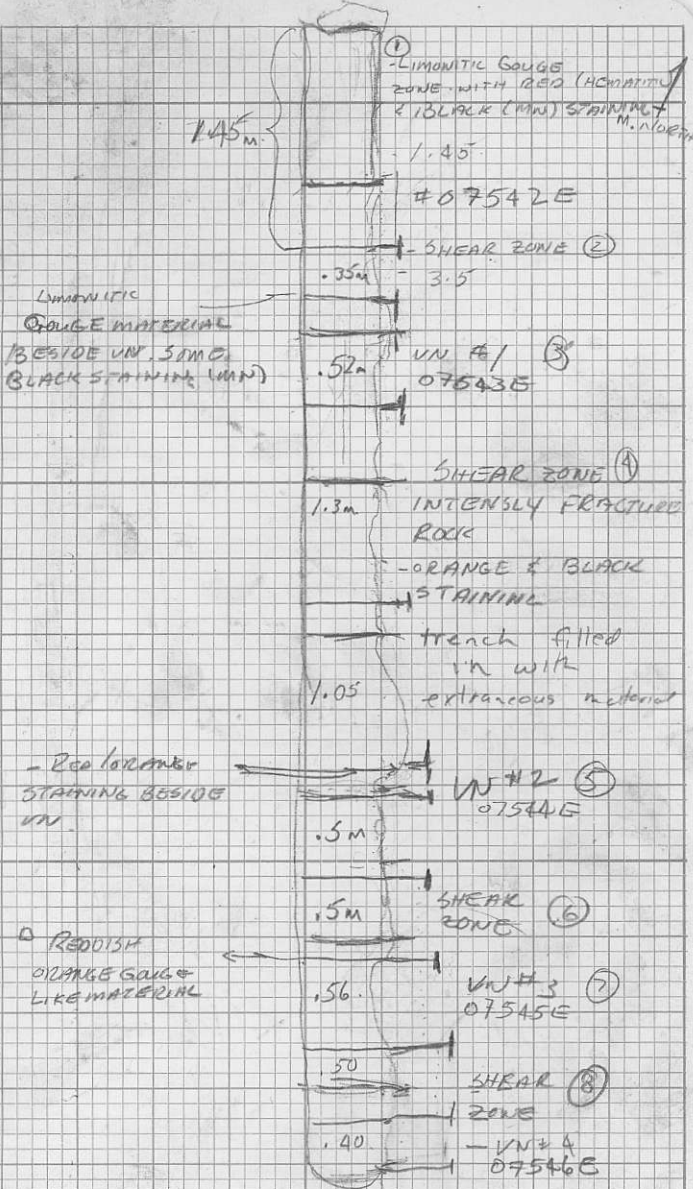 ①
-LIMONITIC GOUGE
ZONE WITH RED (HEMATITIC)
& BLACK (MN) STAINING
M. NORTH
1.45M
- 1.45
#07542E
- SHEAR ZONE ②
.35M
- 3.5
LIMONITIC
GOUGE MATERIAL
BESIDE VN. SOME
BLACK STAINING (MN)
.52M
VN #1 ③
07543E
SHEAR ZONE ④
1.3M
INTENSLY FRACTURE
ROCK
-ORANGE & BLACK
STAINING
trench filled
in with
1.05
extraneous material
- RED/ORANGE
STAINING BESIDE
VN
VN #2 ⑤
07544E
.5M
.5M
SHEAR
ZONE ⑥
REDDISH
ORANGE GOUGE
LIKE MATERIAL
.56
VN #3 ⑦
07545E
.50
SHEAR ⑧
ZONE
.40
- VN #4
07546E